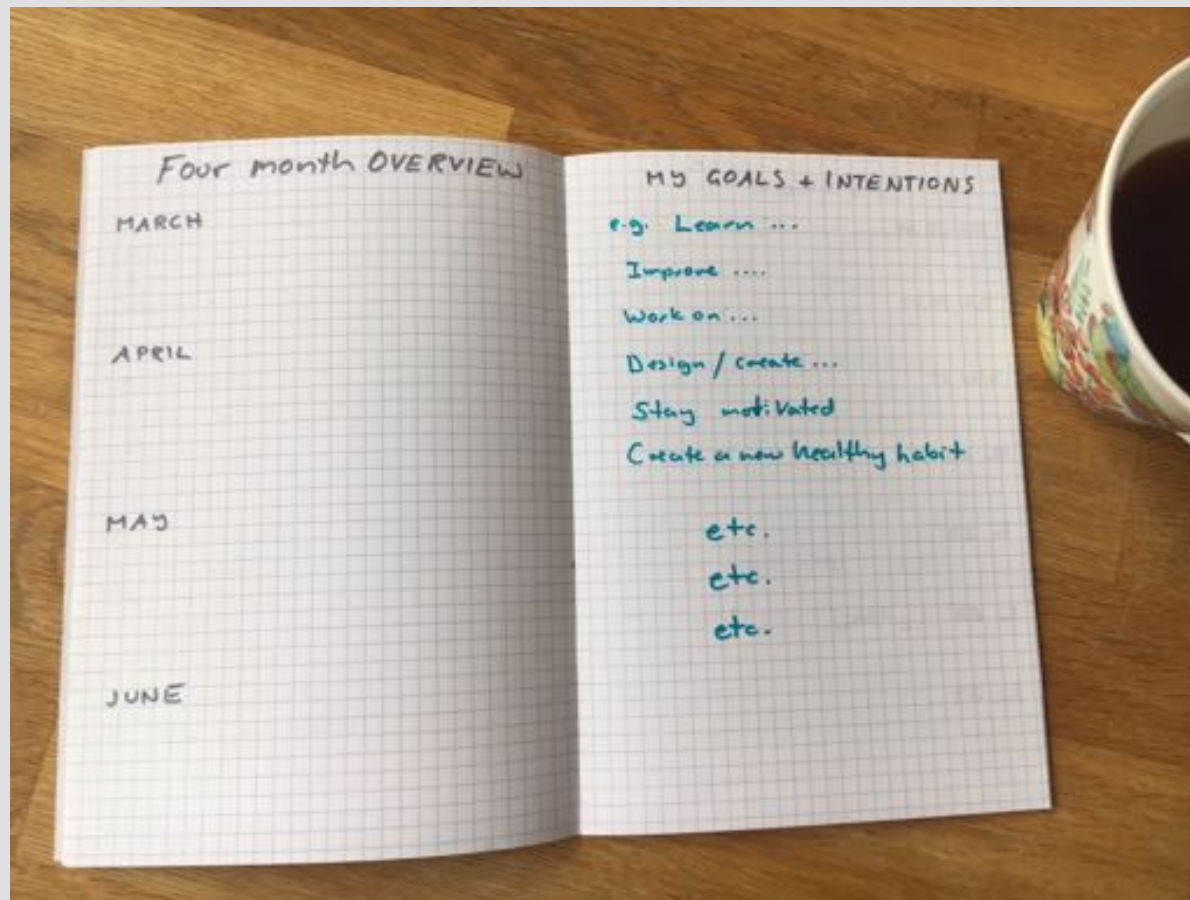 Four month OVERVIEW
MARCH
APRIL
MAY
JUNE
MY GOALS + INTENTIONS
e.g. Learn ...
Improve ....
Work on ...
Design / create ...
Stay motivated
Create a new healthy habit
etc.
etc.
etc.